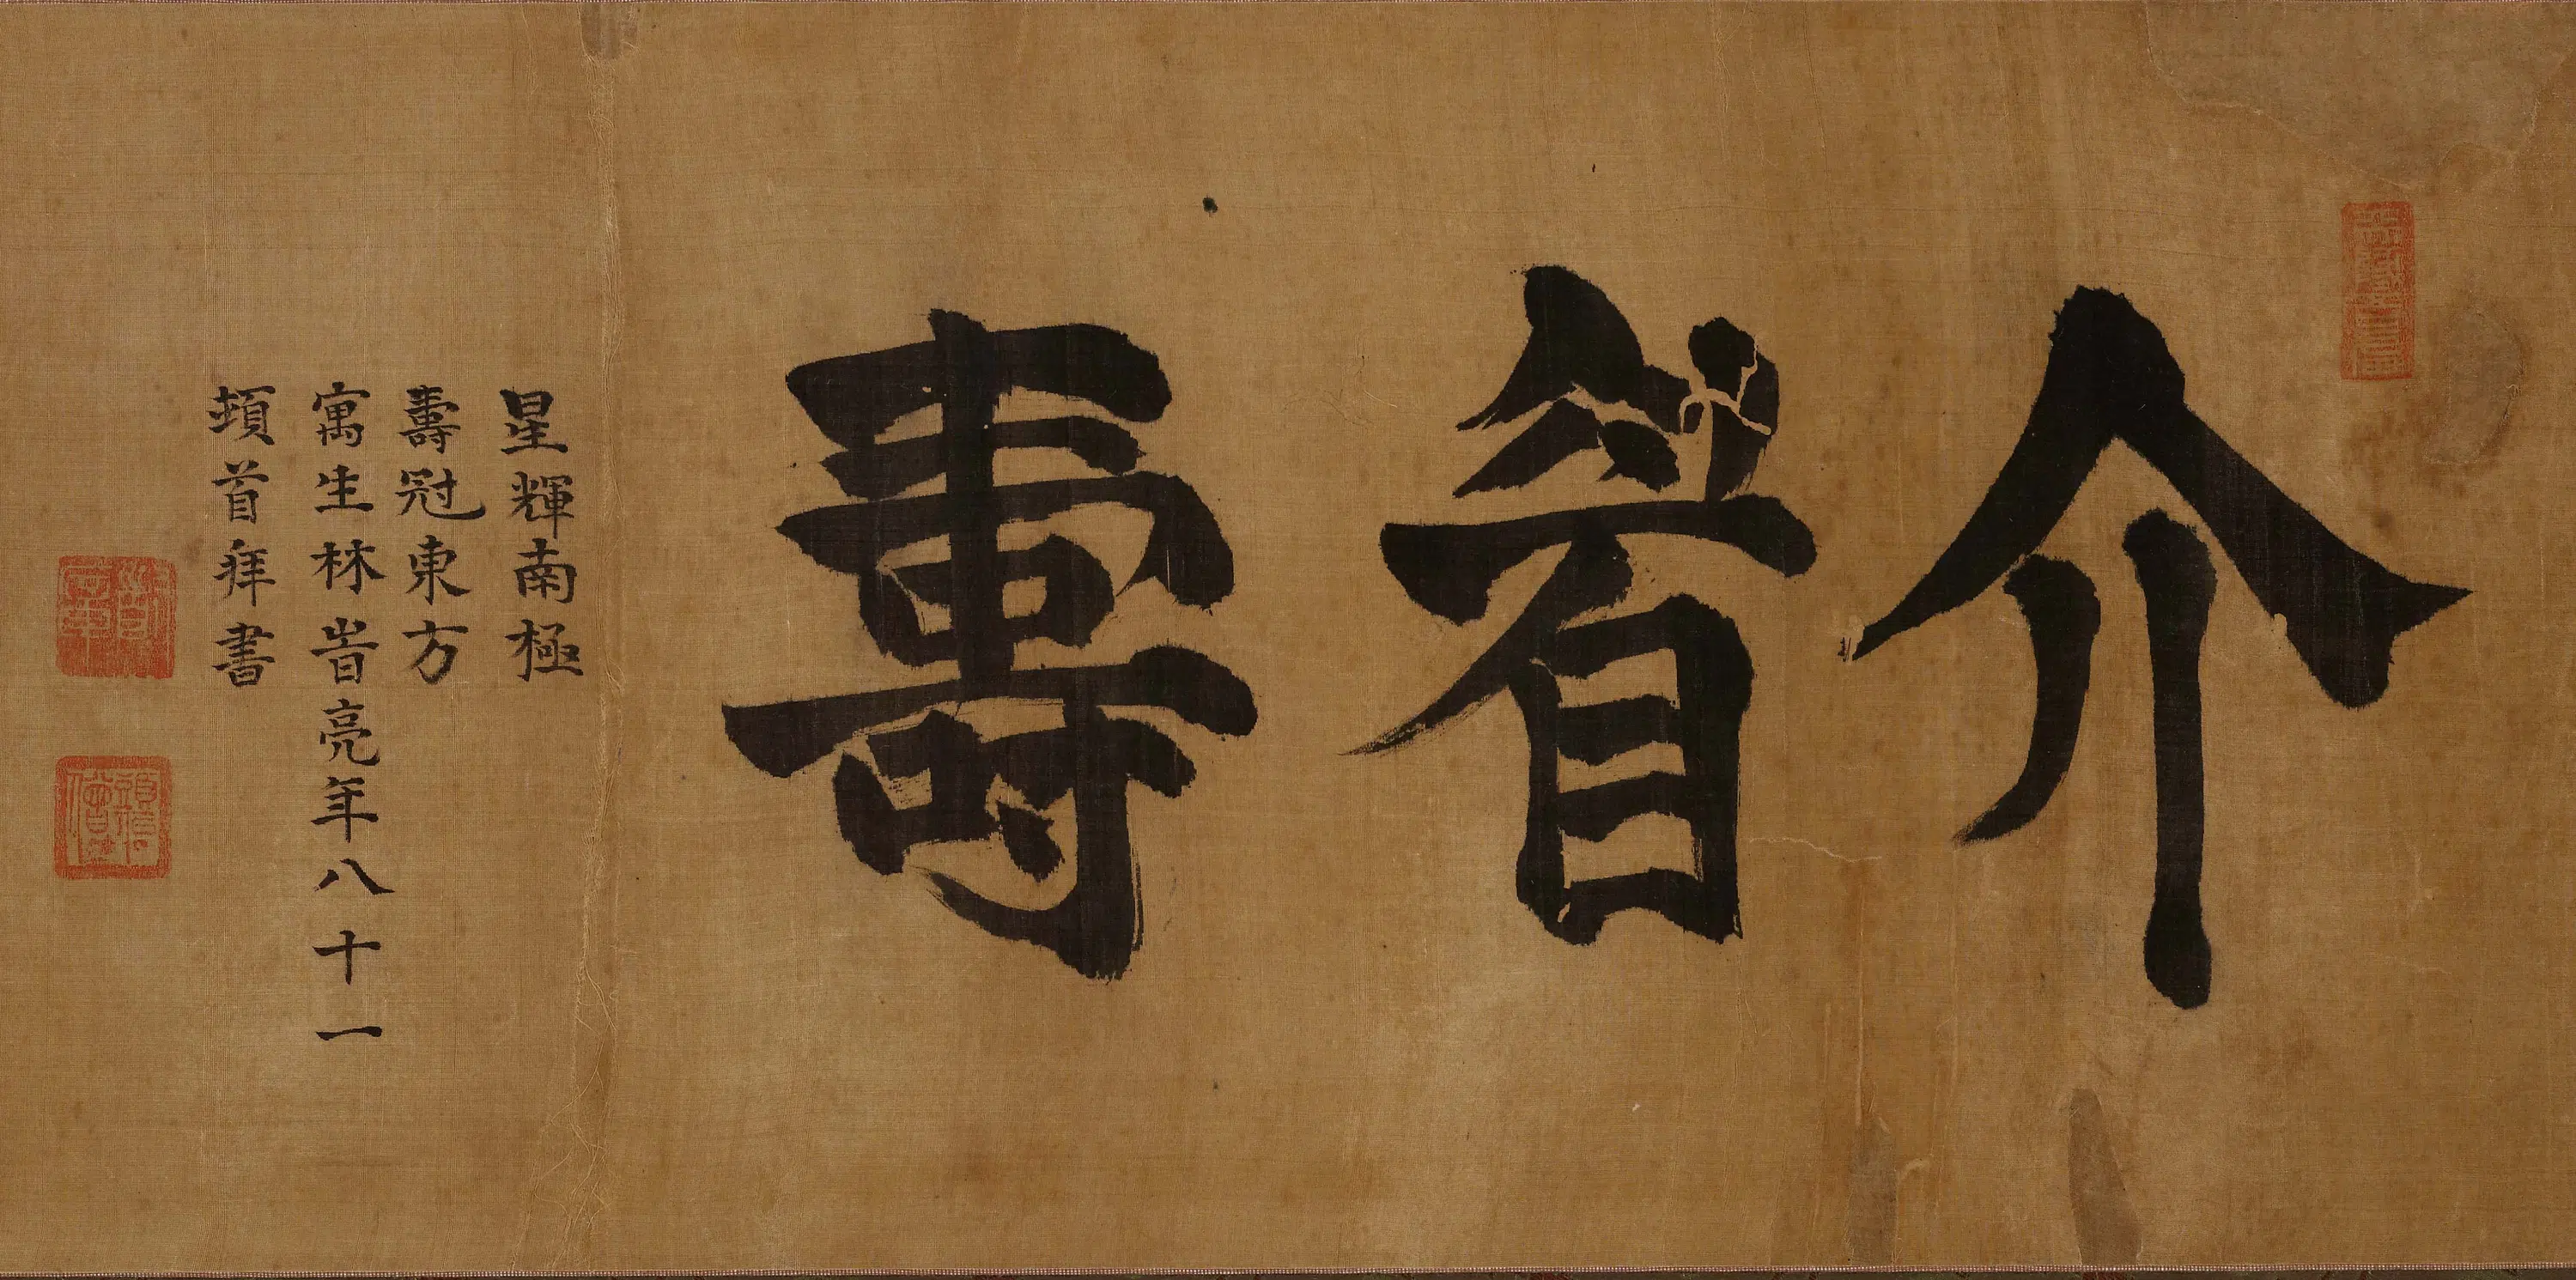 介眉壽
星輝南極
壽冠東方
寓生林旹亮年八十一
頓首拜書